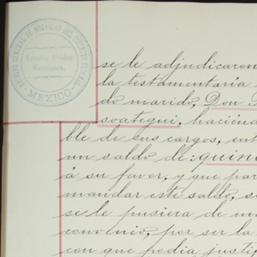 MEXICO
se le adjudicaron
la testamentaria
do marido, Don
soategui, haciénd
ble de sus cargos, ent
un saldo de: quin
á su favor, y que par
mandar este saldo, s
se le pusiera de un
convenio, por ser la
con que podia justif